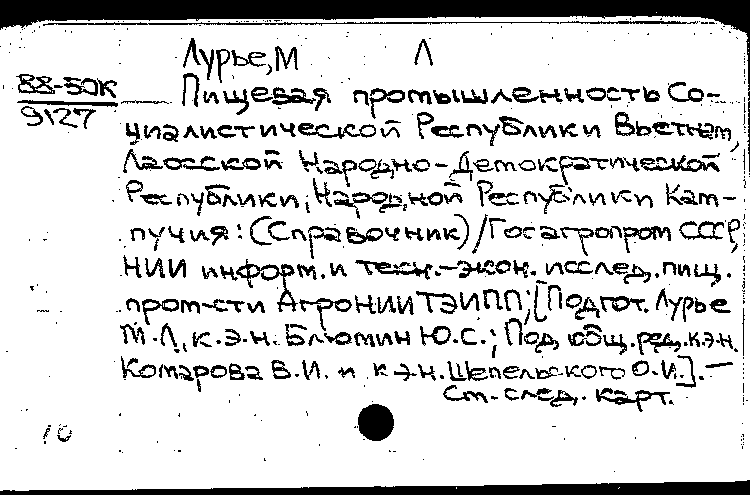 Лурье, М Л
88-50К
9127
Пищевая промышленность Со-
циалистической Республики Вьетнам,
Лаосской Народно-Демократической
Республики, Народной Республики Кам-
пучия: (Справочник)/Госагропром СССР,
НИИ информ. и техн.-экон. исслед. пищ.
пром-сти АгроНИИТЭИПП; [Подгот. Лурье
М.Л., к.э.н. Блюмин Ю.С.; Под общ. ред. к.э.н.
Комарова В.И. и к.э.н. Шепельского О.И.]. —
См. след. карт.
10